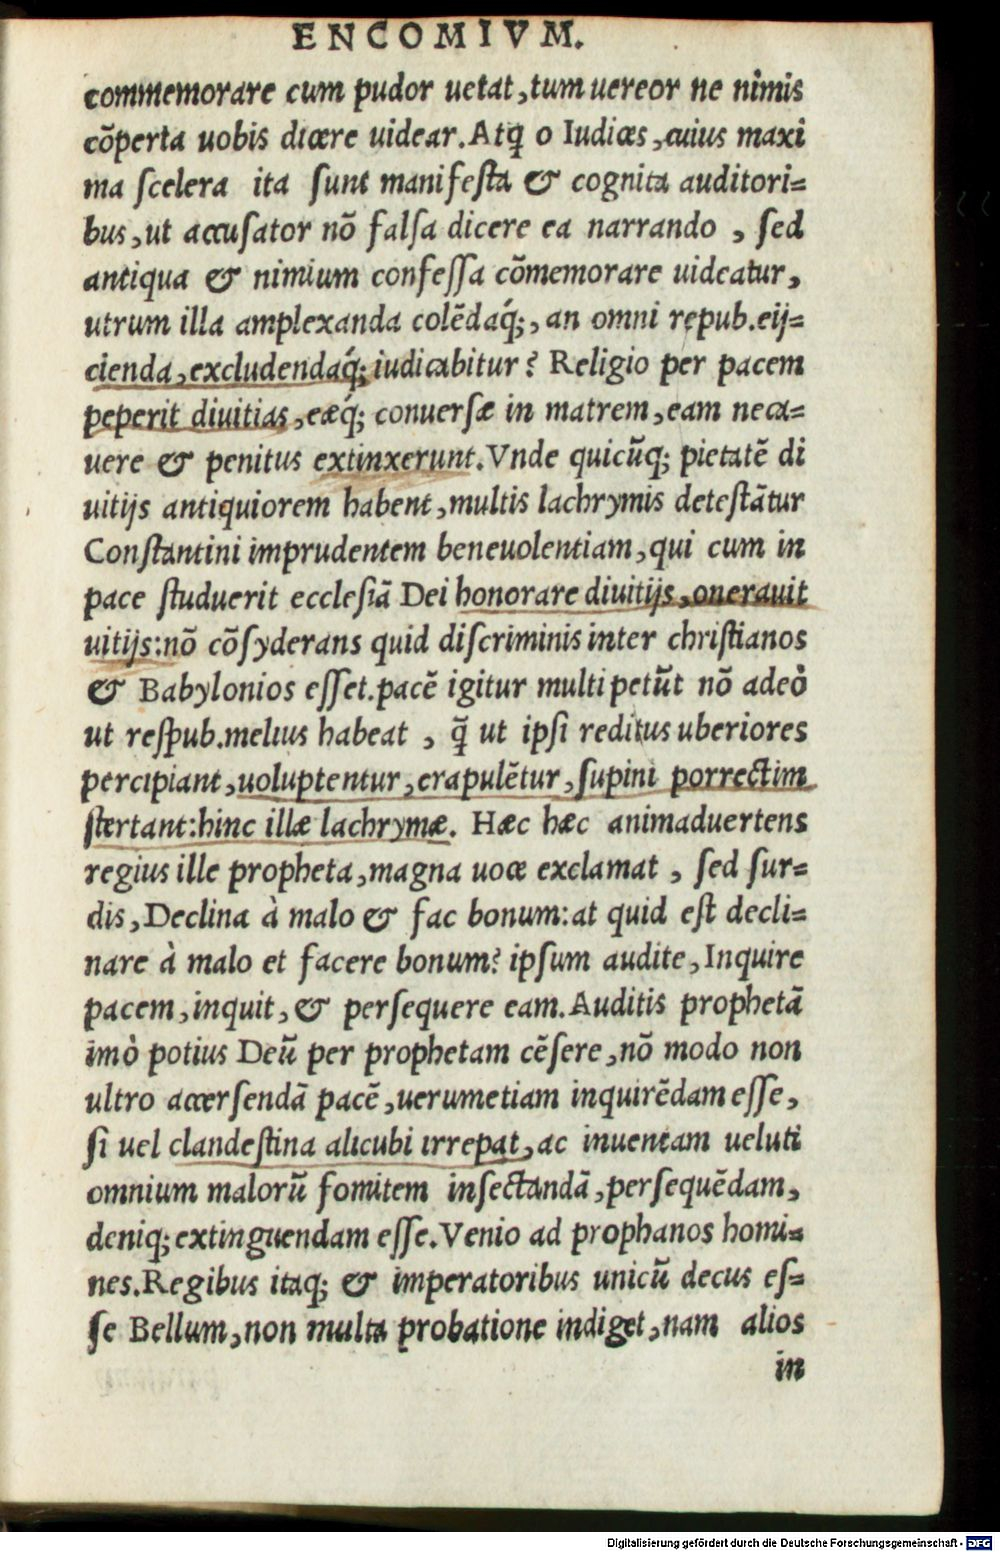 ENCOMIVM.
commemorare cum pudor uetat, tum uereor ne nimis
cõperta uobis dicere uidear. Atq̃ o Iudices, cuius maxi
ma scelera ita sunt manifesta & cognita auditori=
bus, ut accusator nõ falsa dicere ea narrando, sed
antiqua & nimium confessa cõmemorare uideatur,
utrum illa amplexanda colẽdaq́;, an omni repub. eij=
cienda, excludendaq́; iudicabitur? Religio per pacem
peperit diuitias, eæq́; conuersæ in matrem, eam neca=
uere & penitus extinxerunt. Vnde quicũq; pietatẽ di
uitijs antiquiorem habent, multis lachrymis detestãtur
Constantini imprudentem beneuolentiam, qui cum in
pace studuerit ecclesiã Dei honorare diuitijs, onerauit
uitijs: nõ cõsyderans quid discriminis inter christianos
& Babylonios esset. pacẽ igitur multi petũt nõ adeò
ut respub. melius habeat, q̃ ut ipsi reditus uberiores
percipiant, uoluptentur, crapulẽtur, supini porrectim
stertant: hinc illæ lachrymæ. Hæc hæc animaduertens
regius ille propheta, magna uoce exclamat, sed sur=
dis, Declina à malo & fac bonum: at quid est decli=
nare à malo et facere bonum? ipsum audite, Inquire
pacem, inquit, & persequere eam. Auditis prophetã
imò potius Deũ per prophetam cẽsere, nõ modo non
ultro accersendã pacẽ, uerumetiam inquirẽdam esse,
si uel clandestina alicubi irrepat, ac inuentam ueluti
omnium malorũ fomitem insectandã, persequẽdam,
deniq; extinguendam esse. Venio ad prophanos homi=
nes. Regibus itaq; & imperatoribus unicũ decus es=
se Bellum, non multa probatione indiget, nam alios
in
Digitalisierung gefördert durch die Deutsche Forschungsgemeinschaft - DFG